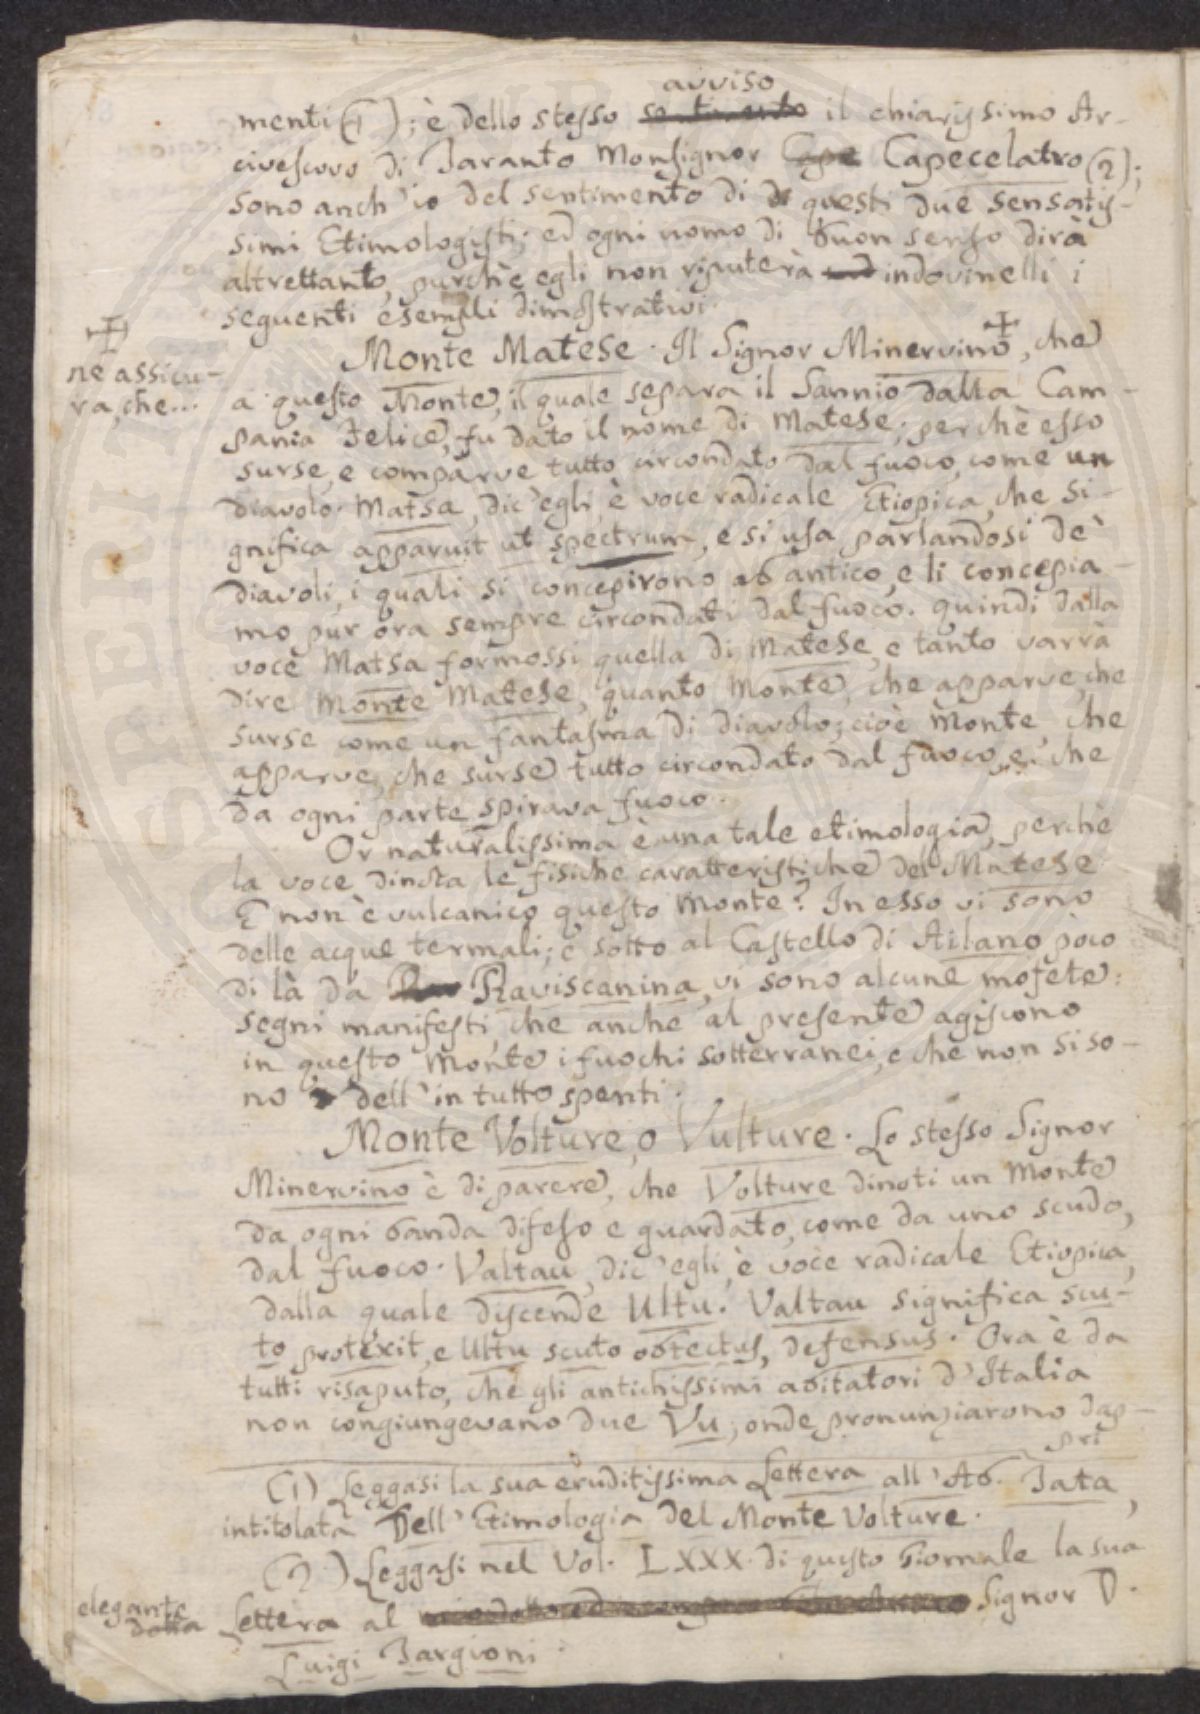 avviso
menti (1); è dello stesso il chiarissimo Ar-
civescovo di Taranto Monsignor Cape Capecelatro (2);
sono anch'io del sentimento di questi due sensatis-
simi Etimologisti; ed ogni uomo di buon senso dirà
altrettanto, purchè egli non riputerà indovinelli i
seguenti esempli dimostrativi.
Monte Matese. Il Signor Minervino +, che
+
ne assicu-
ra, che...
a questo Monte, il quale separa il Sannio dalla Cam-
pania Felice, fu dato il nome di Matese; perchè esso
surse, e comparve tutto circondato dal fuoco, come un
diavolo. Matsa, dic'egli, è voce radicale Etiopica, che si-
gnifica apparuit ut spectrum, e si usa parlandosi de'
diavoli, i quali si concepirono ab antico, e li concepia-
mo pur ora sempre circondati dal fuoco. quindi dalla
voce Matsa formossi quella di Matese, e tanto varrà
dire Monte Matese, quanto Monte, che apparve, che
surse come un fantasma di diavolo; cioè Monte, che
apparve, che surse tutto circondato dal fuoco, e che
da ogni parte spirava fuoco.
Or naturalissima è una tale etimologia, perchè
la voce dinota le fisiche caratteristiche del Matese.
E non è vulcanico questo Monte? In esso vi sono
delle acque termali; e sotto al Castello di Ailano poco
di là da Raviscanina, vi sono alcune mofete:
segni manifesti, che anche al presente agiscono
in questo Monte i fuochi sotterranei, e che non si so-
no dell'in tutto spenti.
Monte Volture, o Vulture. Lo stesso Signor
Minervino è di parere, che Volture dinoti un Monte
da ogni banda difeso e guardato, come da uno scudo,
dal fuoco. Valtau, dic'egli, è voce radicale Etiopica,
dalla quale discende Ultu. Valtau significa scu-
to protexit, e Ultu scuto obtectus, defensus. Ora è da
tutti risaputo, che gli antichissimi abitatori d'Italia
non congiungevano due Vu; onde pronunziarono dap-
pri
(1) Leggasi la sua eruditissima Lettera all'Ab. Tata,
intitolata Dell'Etimologia del Monte Volture.
(2) Leggasi nel Vol. LXXX. di questo Giornale la sua
elegante
dotta
Lettera al Signor D.
Luigi Targioni.